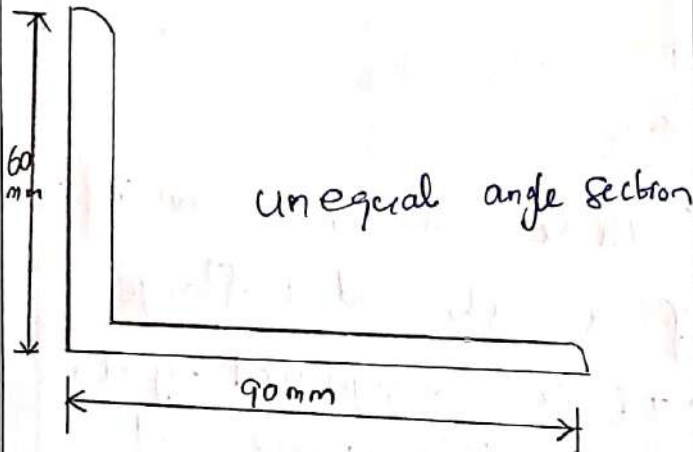 60
mm
unequal angle section
90mm